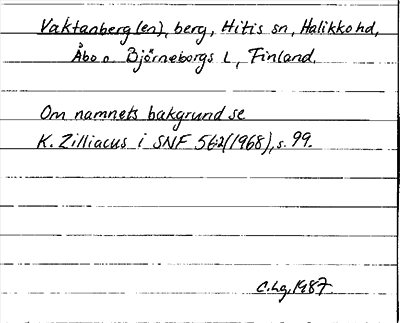 Vaktanberg(en), berg, Hitis sn, Halikko hd,
Åbo o. Björneborgs L, Finland.
Om namnets bakgrund se
K. Zilliacus i SNF 56:2(1968), s. 99.
C.Lg, 1987